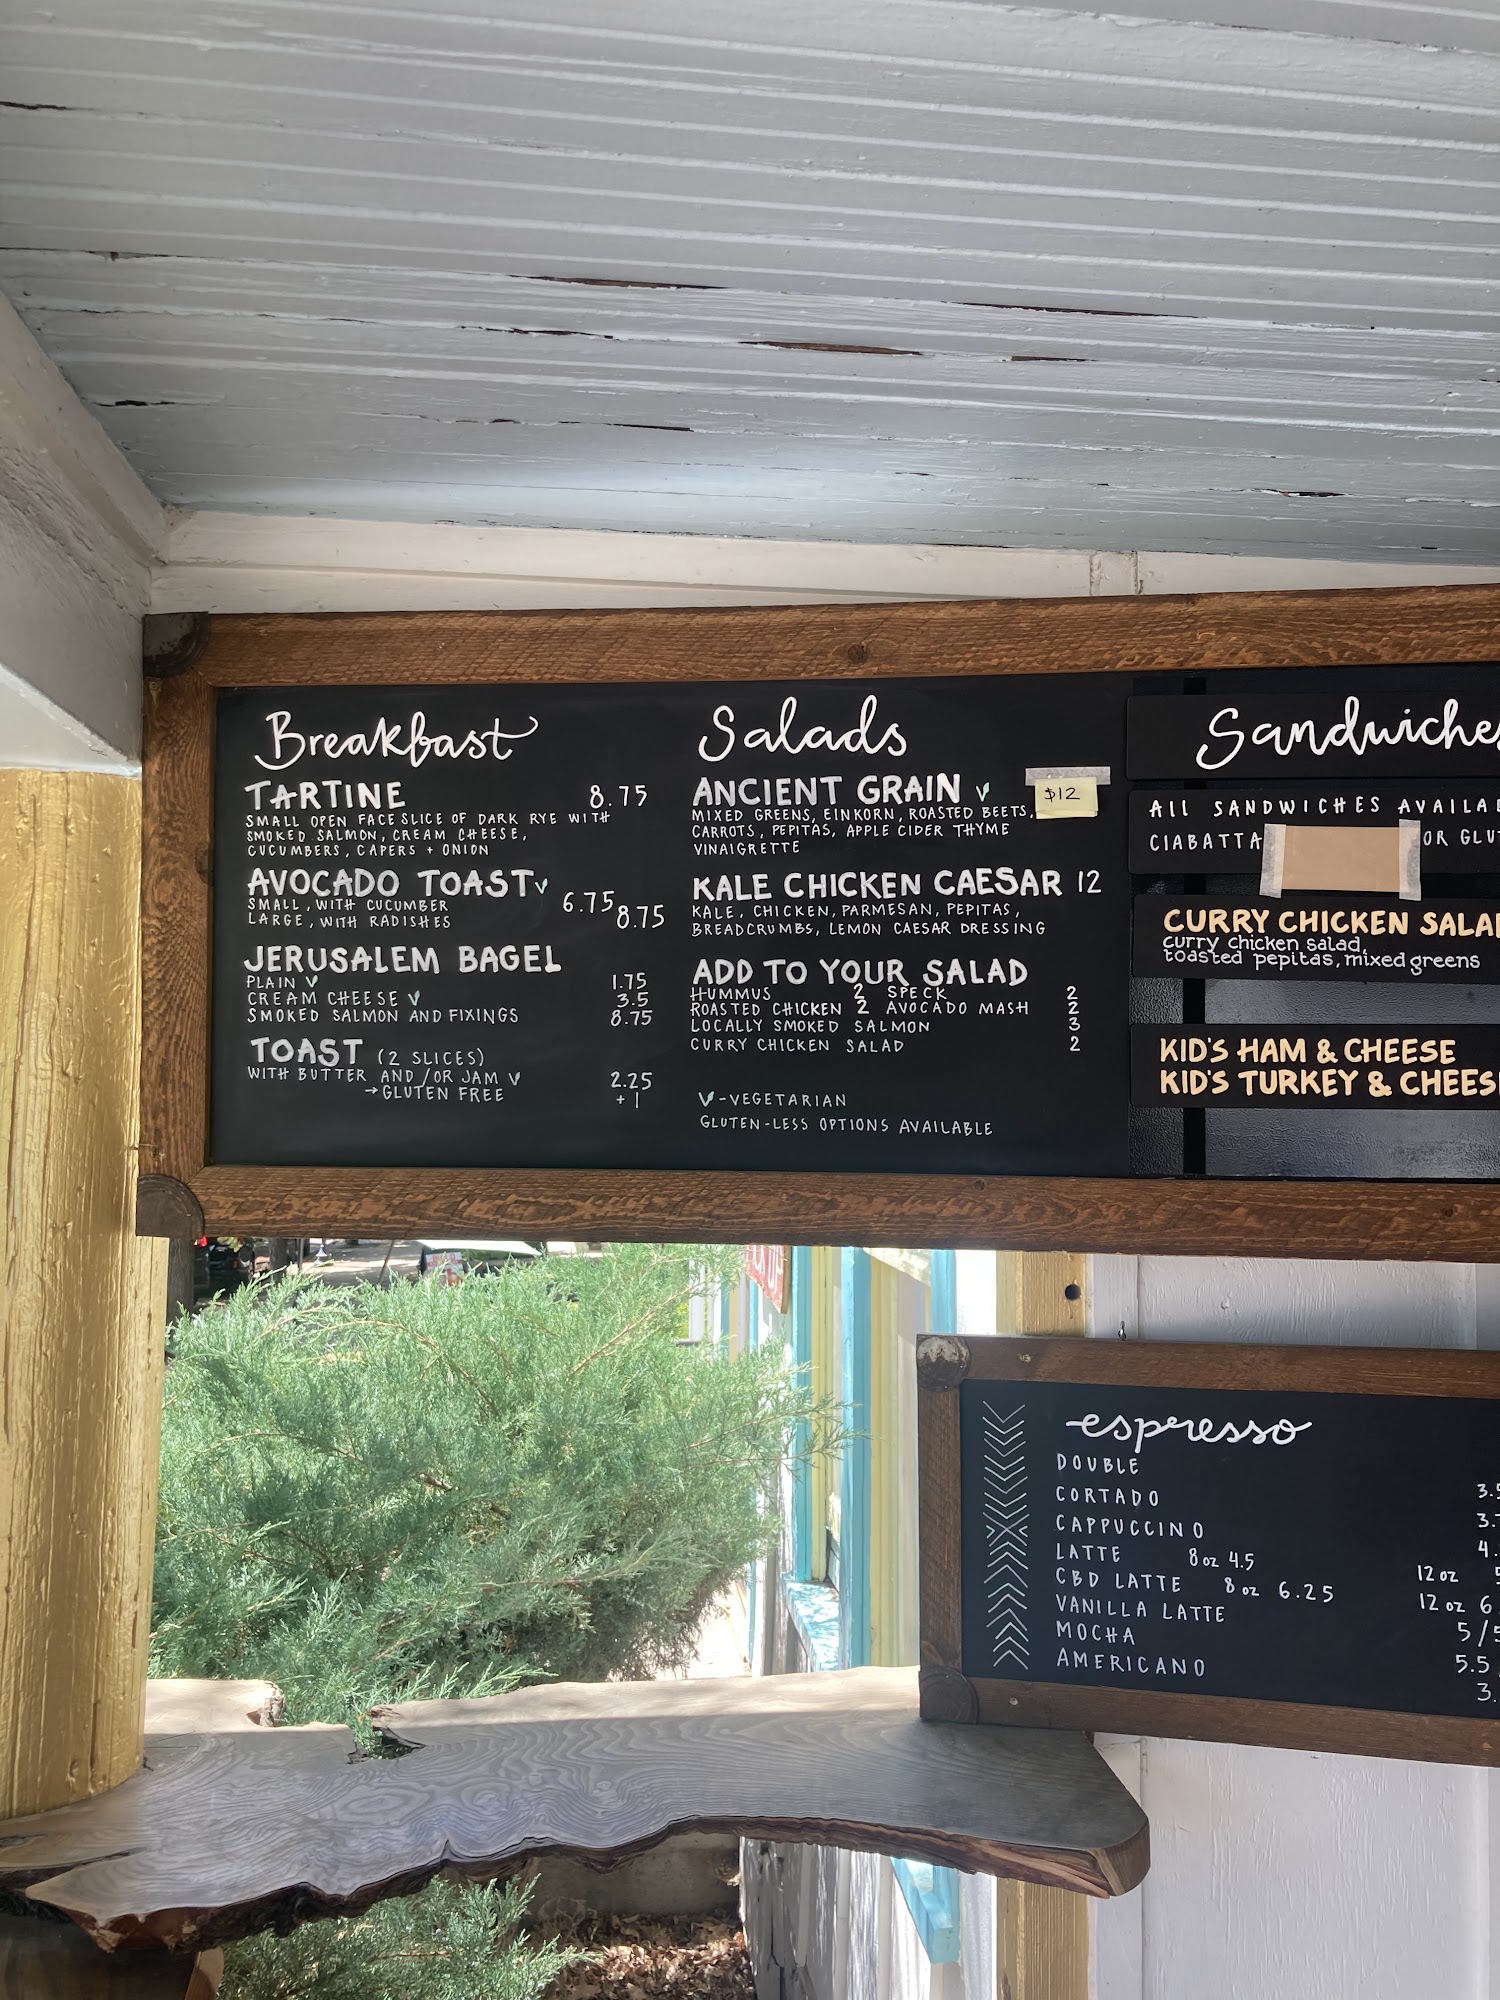 Breakfast
TARTINE 8.75
SMALL OPEN FACE SLICE OF DARK RYE WITH
SMOKED SALMON, CREAM CHEESE,
CUCUMBERS, CAPERS + ONION
AVOCADO TOAST V
SMALL, WITH CUCUMBER 6.75
LARGE, WITH RADISHES 8.75
JERUSALEM BAGEL
PLAIN V 1.75
CREAM CHEESE V 3.5
SMOKED SALMON AND FIXINGS 8.75
TOAST (2 SLICES)
WITH BUTTER AND/OR JAM V 2.25
→ GLUTEN FREE + 1
Salads
ANCIENT GRAIN V $12
MIXED GREENS, EINKORN, ROASTED BEETS,
CARROTS, PEPITAS, APPLE CIDER THYME
VINAIGRETTE
KALE CHICKEN CAESAR 12
KALE, CHICKEN, PARMESAN, PEPITAS,
BREADCRUMBS, LEMON CAESAR DRESSING
ADD TO YOUR SALAD
HUMMUS 2 SPECK 2
ROASTED CHICKEN 2 AVOCADO MASH 2
LOCALLY SMOKED SALMON 3
CURRY CHICKEN SALAD 2
V - VEGETARIAN
GLUTEN-LESS OPTIONS AVAILABLE
Sandwiches
All SANDWICHES AVAILA
CIABATTA OR GLU
CURRY CHICKEN SALA
curry chicken salad,
toasted pepitas, mixed greens
KID'S HAM & CHEESE
KID'S TURKEY & CHEES
UP
espresso
DOUBLE
CORTADO 3.
CAPPUCCINO 3.
LATTE 8oz 4.5 4.
CBD LATTE 8oz 6.25 12oz
VANILLA LATTE 12oz 6
MOCHA 5/
AMERICANO 5.5
3.